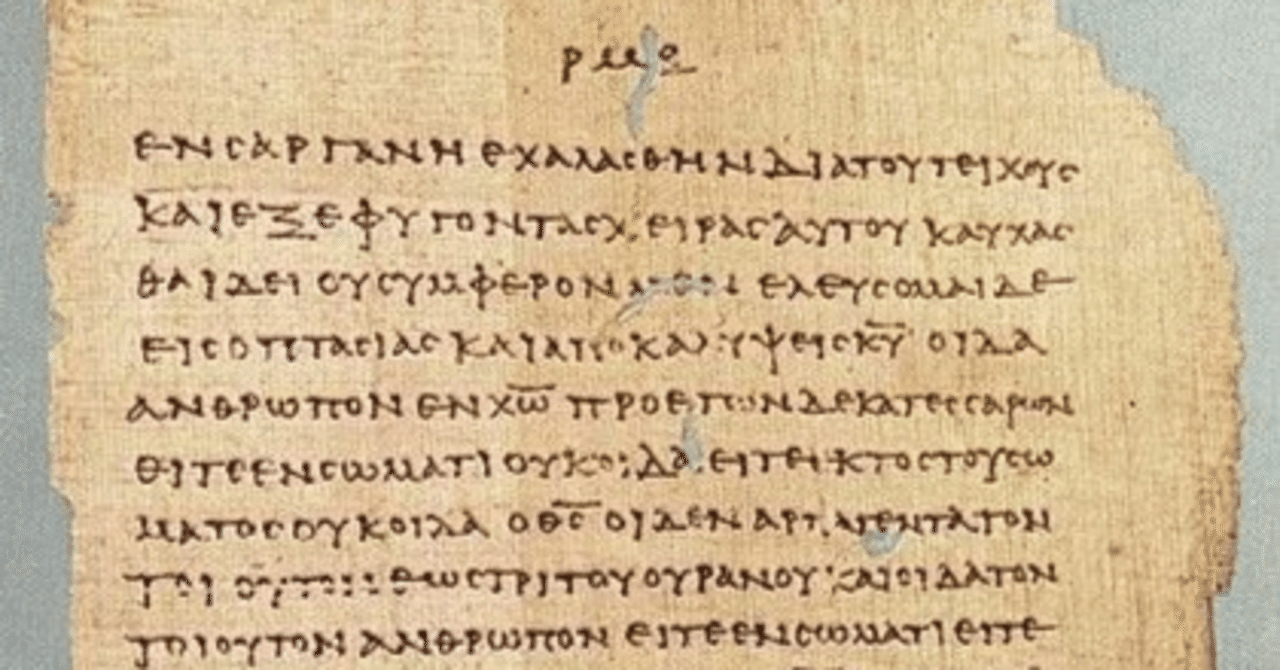 ΕΝϹΑΡΓΑΝΗΕΧΑΛΑϹΘΗΝΔΙΑΤΟΥΤΕΙΧΟΥϹ
ΚΑΙΕΞΕΦΥΓΟΝΤΑϹΧΕΙΡΑϹΑΥΤΟΥΚΑΥΧΑϹ
ΘΑΙΔΕΙΟΥϹΥΜΦΕΡΟΝ ΕΛΕΥϹΟΜΑΙΔΕ
ΕΙϹΟΠΤΑϹΙΑϹΚΑΙΑΠΟΚΑΛΥΨΕΙϹΚ̅Υ̅ ΟΙΔΑ
ΑΝΘΡΩΠΟΝΕΝΧ̅Ω̅ΠΡΟΕΤΩΝΔΕΚΑΤΕϹϹΑΡΩΝ
ΕΙΤΕΕΝϹΩΜΑΤΙΟΥΚΟΙΔΑΕΙΤΕΕΚΤΟϹΤΟΥϹΩ
ΜΑΤΟϹΟΥΚΟΙΔΑΟΘ̅Ϲ̅ΟΙΔΕΝΑΡΠΑΓΕΝΤΑΤΟΝ
ΤΟΙΟΥΤΟΝΕΩϹΤΡΙΤΟΥΟΥΡΑΝΟΥΚΑΙΟΙΔΑΤΟΝ
ΤΟΙΟΥΤΟΝΑΝΘΡΩΠΟΝΕΙΤΕΕΝϹΩΜΑΤΙΕΙΤΕ